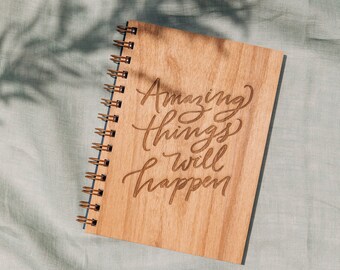 Amazing
things
will
happen